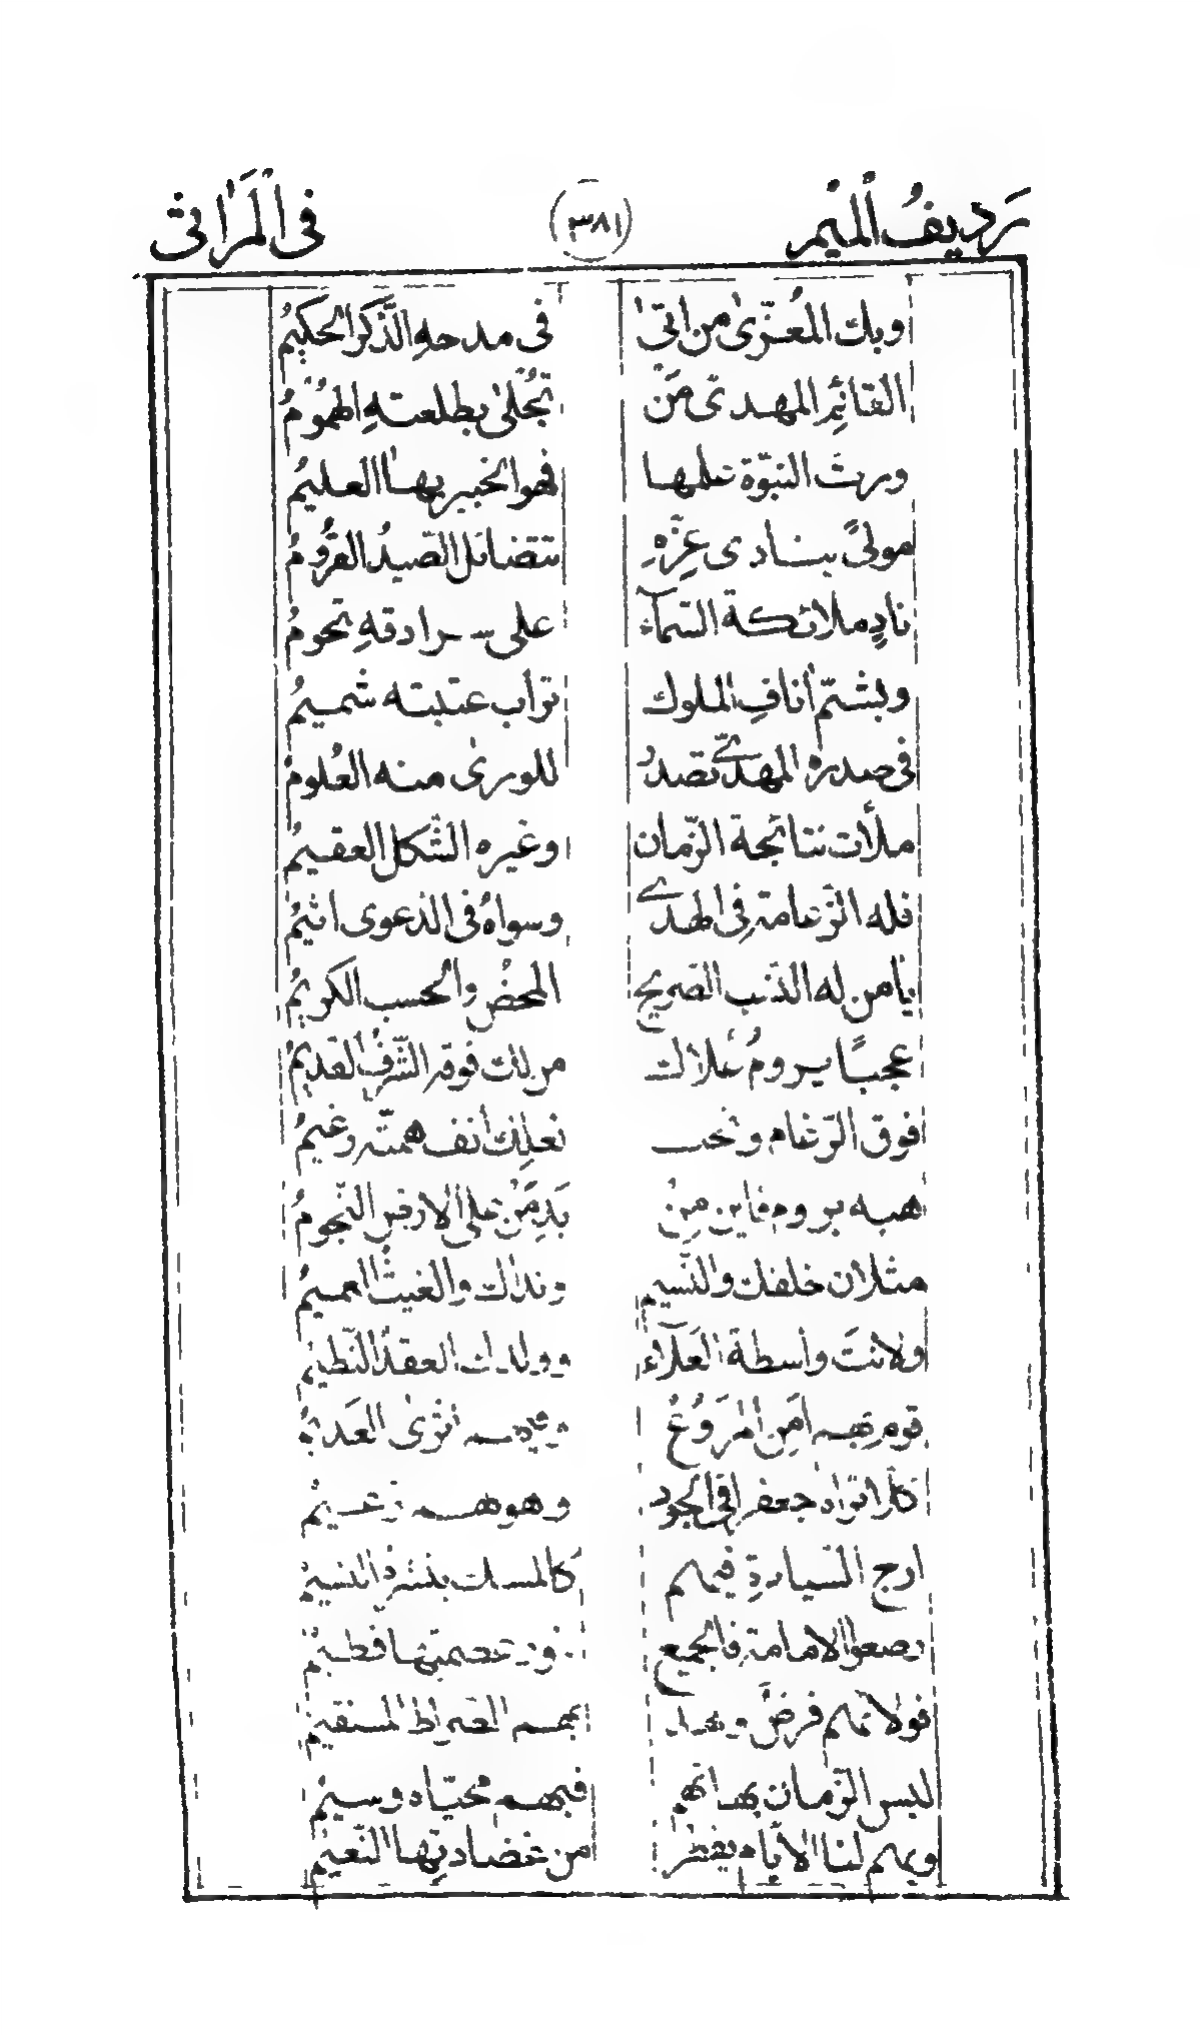 رديفُ الميم (٣٨١) في المراثي
وبك المعزّى من اتى في مدحهِ الذّكر الحكيمُ
القائم المهدي مَنْ تُجلى بطلعتهِ الهمومُ
ورث النبوّة علمها فهو الخبير بها العليمُ
مولىً بنادي عِزّهِ تتضائل الصّيدُ القرومُ
نادٍ ملائكة السّماء على سرادقهِ تحومُ
وبشمّ اناف الملوك تراب عتبته شميمُ
في صدره المهديّ تصدر للورى منه العُلومُ
ملأت نتائجه الزّمان وغيره الشّكل العقيمُ
فله الزّعامة في الهدى وسواهُ في الدعوى اثيمُ
يا من له النسب الصّريح المحضُ والحسب الكريمُ
عجبًا يرومُ علاك من لك فوقه الشّرفُ القديمُ
فوق الرّغام وتحت نعلك انف همّته رغيمُ
هبه يروم فاين مِنْ يَدِ مَنْ على الارض النّجومُ
مثلان خلقك والنّسيم ونداك والغيثُ العميمُ
ولانتَ واسطة العَلاء وولدك العقدُ النّظيمُ
قوم به امِن المَروعُ اثرى العَديمُ
كلٌ اتراه جعفرا في الجود وهو به زعيمُ
ارج السّيادةِ فيهم كالمسك ينشره النّسيمُ
الامامة فالجميع عصمتها فطيمُ
فولائهم فرضٌ بهم الصّراط المستقيمُ
لبس الزّمان بهائهم فبهم محيّاه وسيمُ
وبهم لنا الأيّام يقطر من غضارتها النّعيمُ